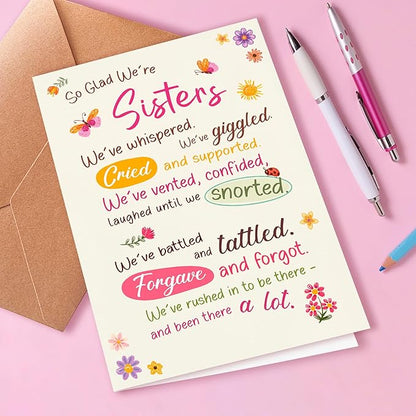 So Glad We're
Sisters
We've whispered.
We've giggled.
Cried and supported.
We've vented, confided,
laughed until we snorted.
We've battled and tattled.
Forgave and forgot.
We've rushed in to be there –
and been there a lot.